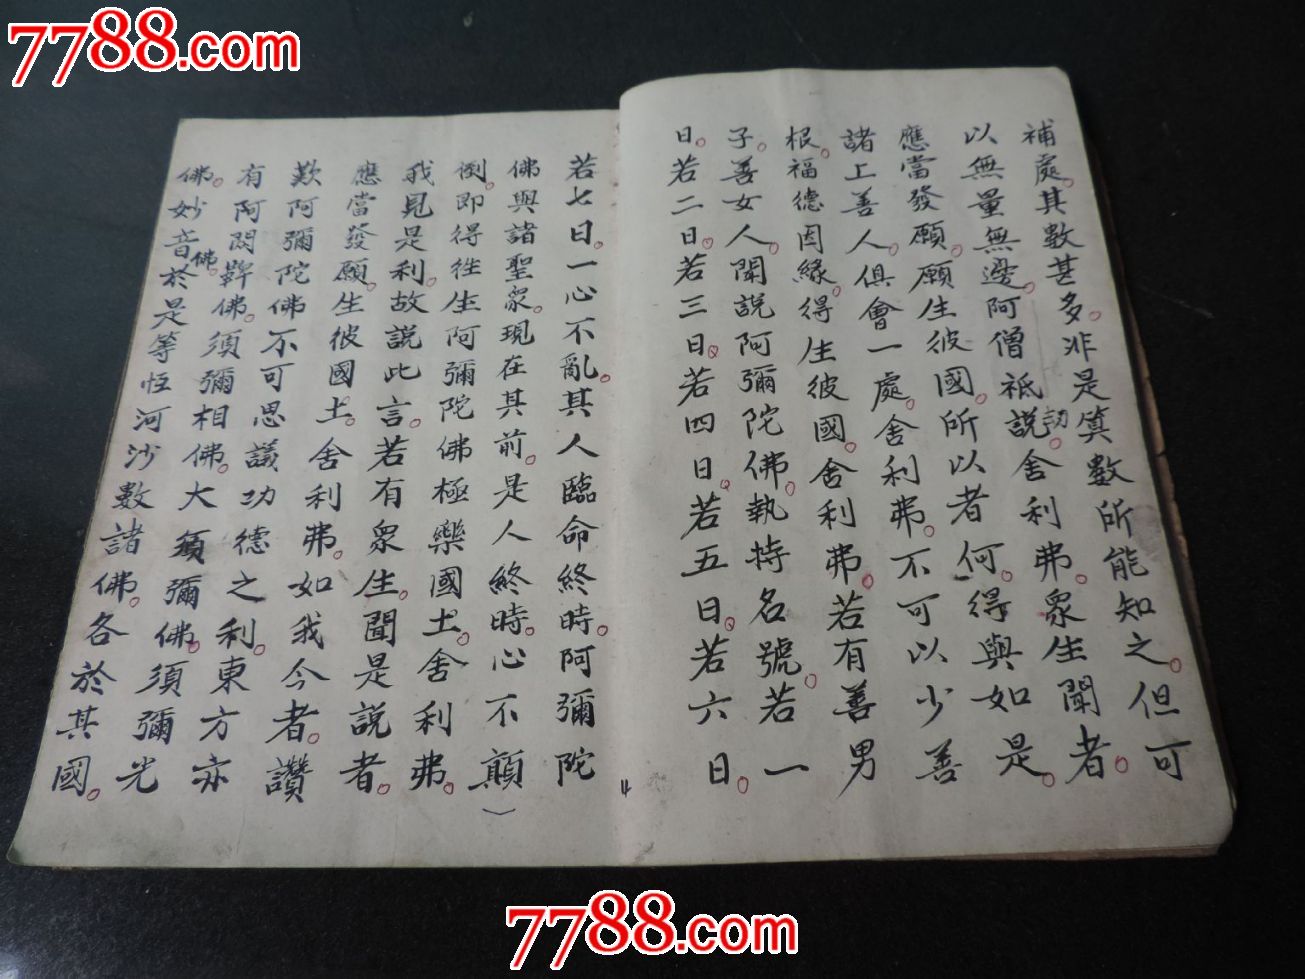 7788.com
補處。其數甚多。非是算數所能知之。但可
以無量無邊。阿僧祇劫說。舍利弗。眾生聞者。
應當發願。願生彼國。所以者何。得與如是。
諸上善人。俱會一處。舍利弗。不可以少善
根。福德因緣。得生彼國。舍利弗。若有善男
子。善女人。聞說阿彌陀佛。執持名號。若一
日。若二日。若三日。若四日。若五日。若六日。
若七日。一心不亂。其人臨命終時。阿彌陀
佛與諸聖衆。現在其前。是人終時。心不顛
倒。即得徃生阿彌陀佛極樂國土。舍利弗。
我見是利。故說此言。若有眾生。聞是說者。
應當發願。生彼國土。舍利弗。如我今者。讚
歎阿彌陀佛不可思議功德之利。東方亦
有阿閦鞞佛。須彌相佛。大須彌佛。須彌光
佛。妙音佛。於是等恒河沙數諸佛。各於其國。
7788.com